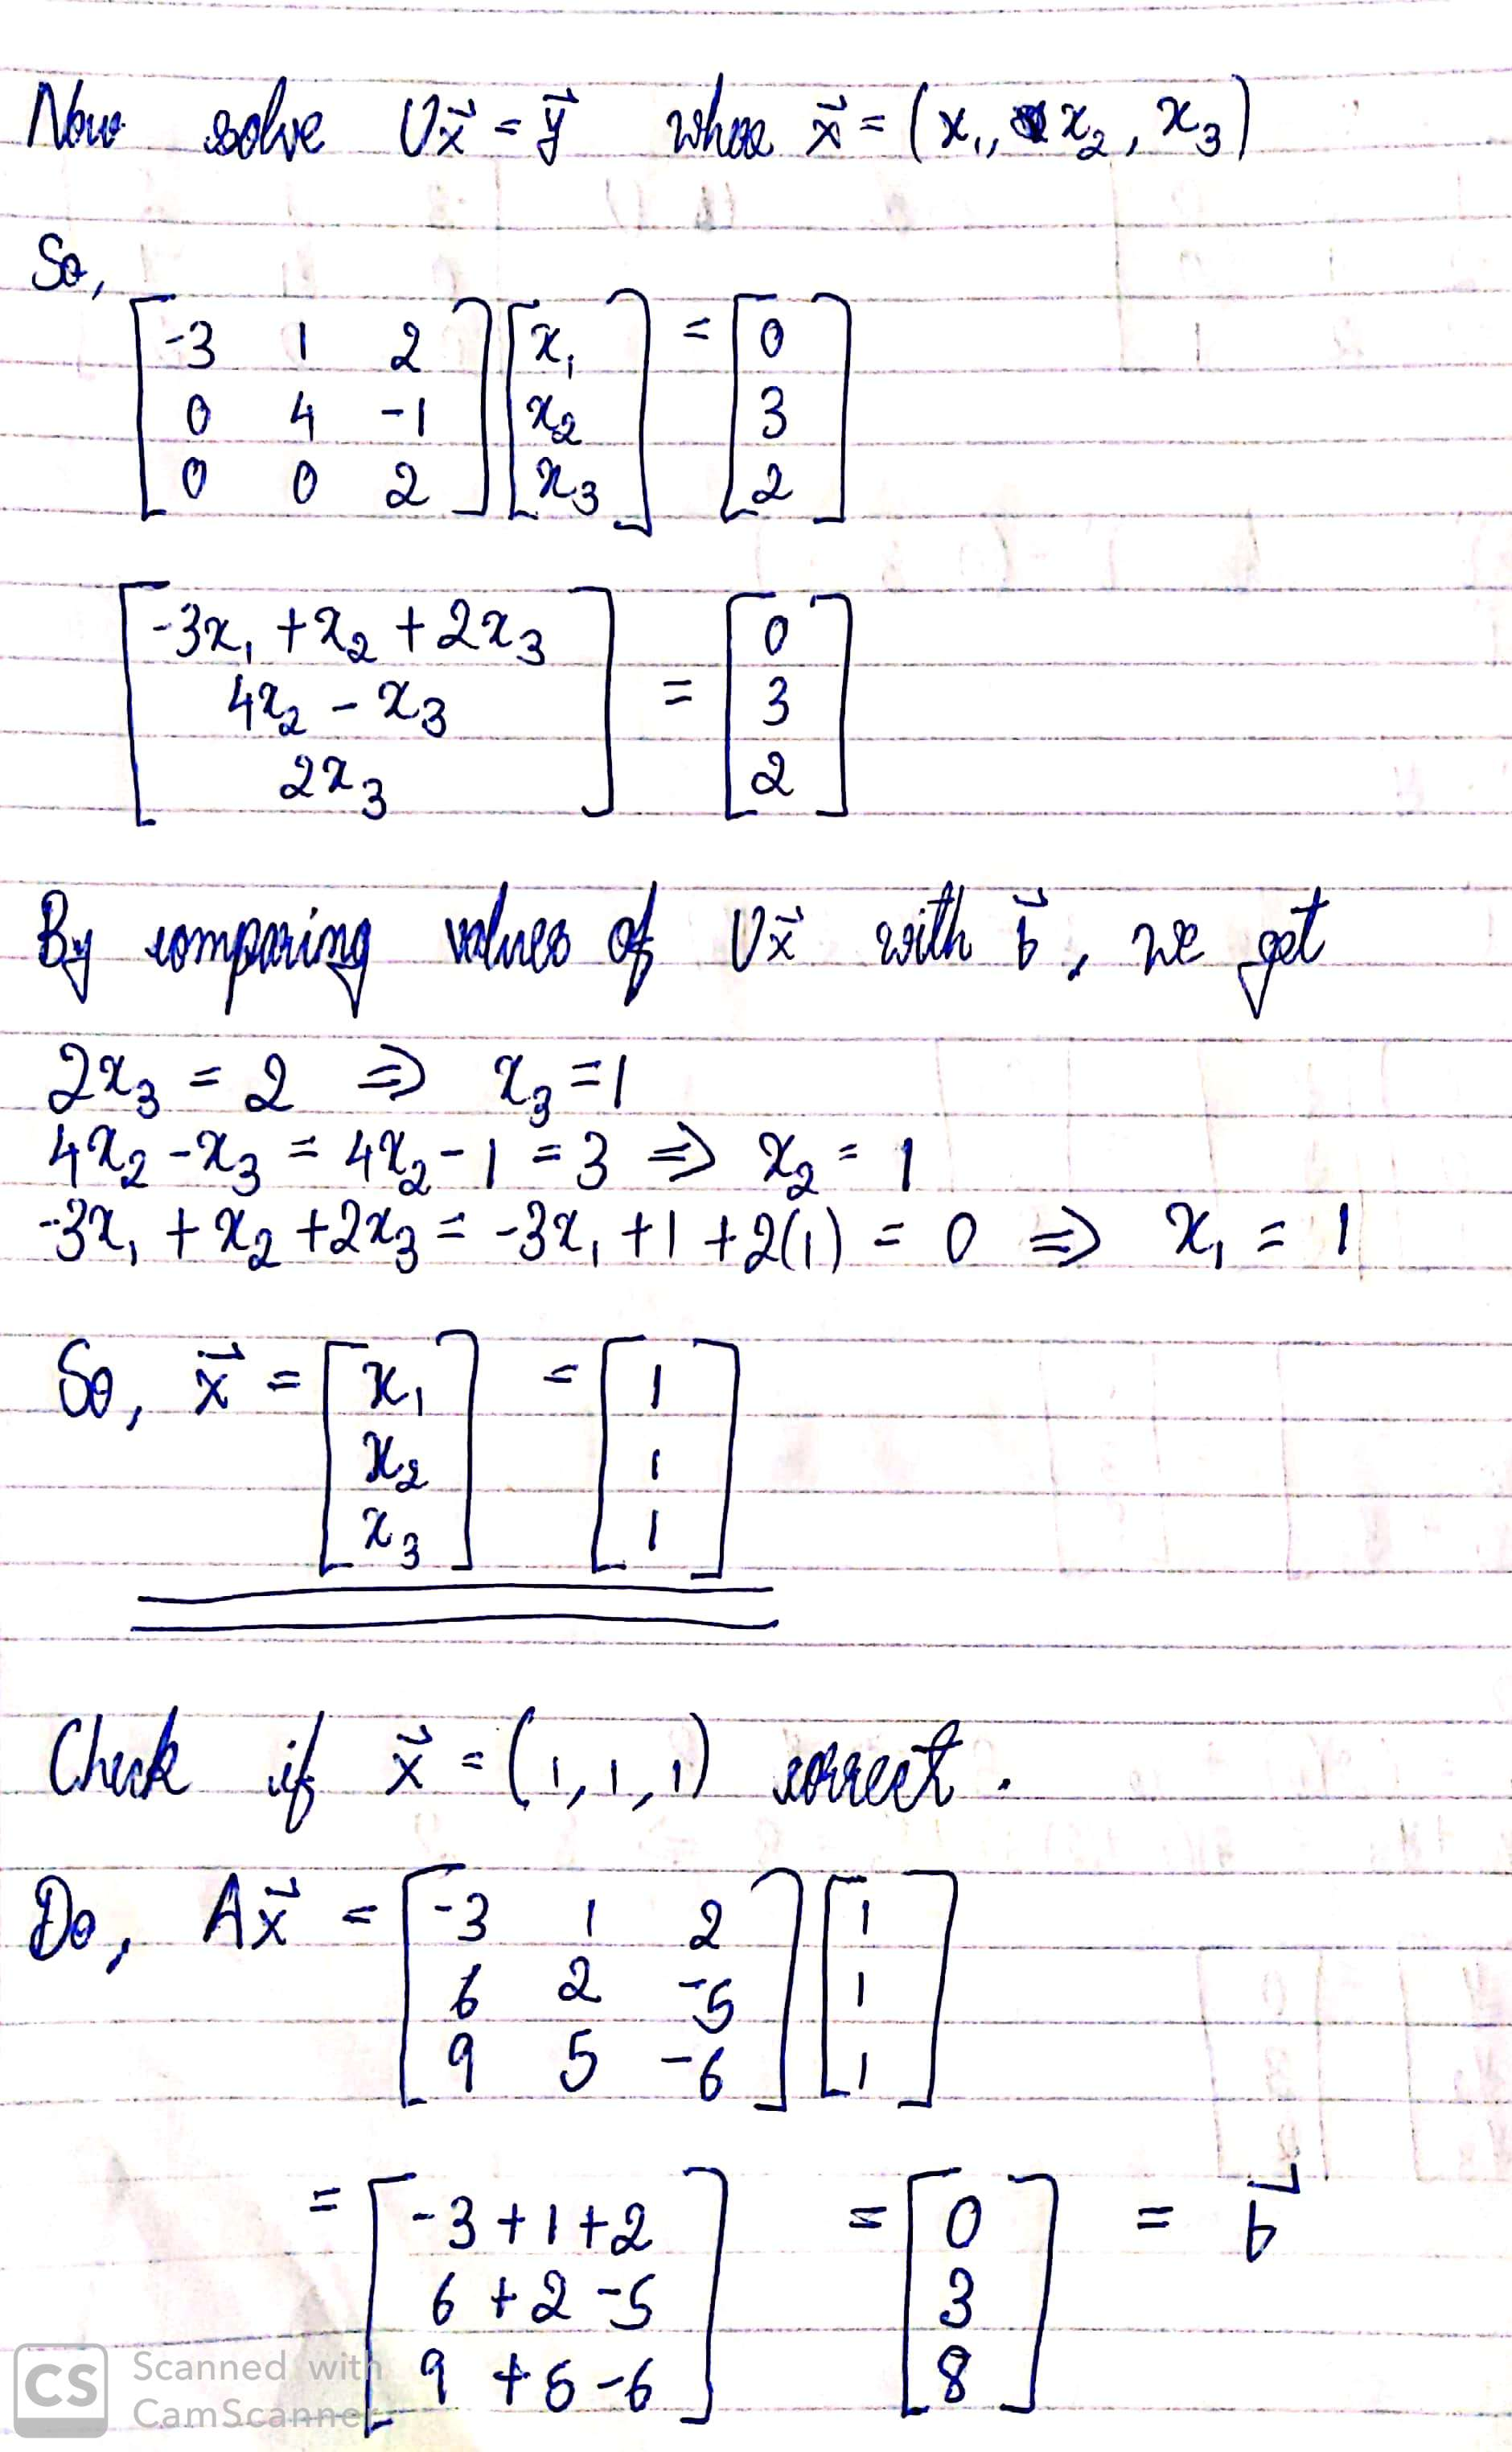 Now solve Ux⃗ = y⃗ where x⃗ = (x₁, x₂, x₃)
So,
[-3 1 2] [x₁] = [0]
[0 4 -1] [x₂] [3]
[0 0 2] [x₃] [2]
[-3x₁ + x₂ + 2x₃] [0]
[4x₂ - x₃] = [3]
[2x₃] [2]
By comparing values of Ux⃗ with b⃗, we get
2x₃ = 2 ⇒ x₃ = 1
4x₂ - x₃ = 4x₂ - 1 = 3 ⇒ x₂ = 1
-3x₁ + x₂ + 2x₃ = -3x₁ + 1 + 2(1) = 0 ⇒ x₁ = 1
So, x⃗ = [x₁] = [1]
[x₂] [1]
[x₃] [1]
Check if x⃗ = (1, 1, 1) correct.
Do, Ax⃗ = [-3 1 2] [1]
[6 2 -5] [1]
[9 5 -6] [1]
= [-3 + 1 + 2] = [0] = b⃗
[6 + 2 - 5] [3]
[9 + 5 - 6] [8]
CS Scanned with
CamScanner